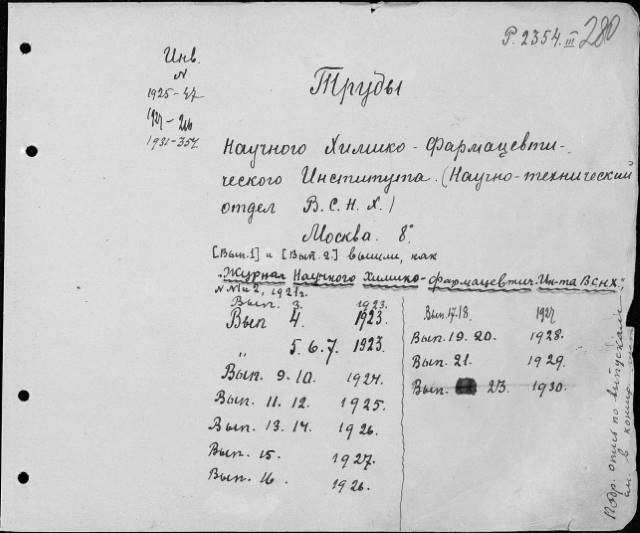 Р. 2354.III 280
Инв.
N
1925-47
1927-216
1931-357
Труды
Научного Химико-Фармацевти-
ческого Института. (Научно-технический
отдел В.С.Н.Х.)
Москва. 8°
[Вып.1] и [Вып.2.] вышли, как
"Журнал Научного Химико-фармацевтич. Ин-та ВСНХ",
N N 1 и 2, 1921г.
Вып. 3. 1923.
Вып 4. 1923.
„ 5. 6. 7. 1923.
Вып. 9. 10. 1924.
Вып. 11. 12. 1925.
Вып. 13. 14. 1926.
Вып. 15. 1927.
Вып. 16. 1926.
Вып. 17-18. 1927
Вып. 19. 20. 1928.
Вып. 21. 1929.
Вып. 23. 1930.
Подр. опись по выпускам
см. в конце